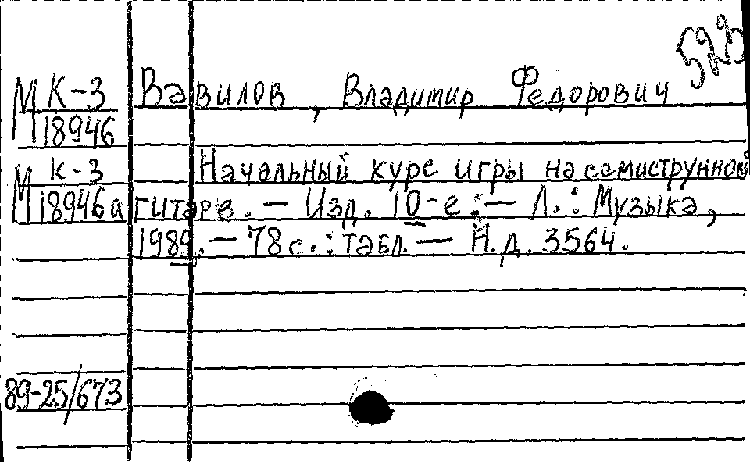 529
М К-3 Вавилов, Владимир Федорович
18946
М К-3 Начальный курс игры на семиструнной
18946а гитаре. — Изд. 10-е. — Л.: Музыка,
1989. — 78 с.: табл — Н.д. 3564.
89-25/673